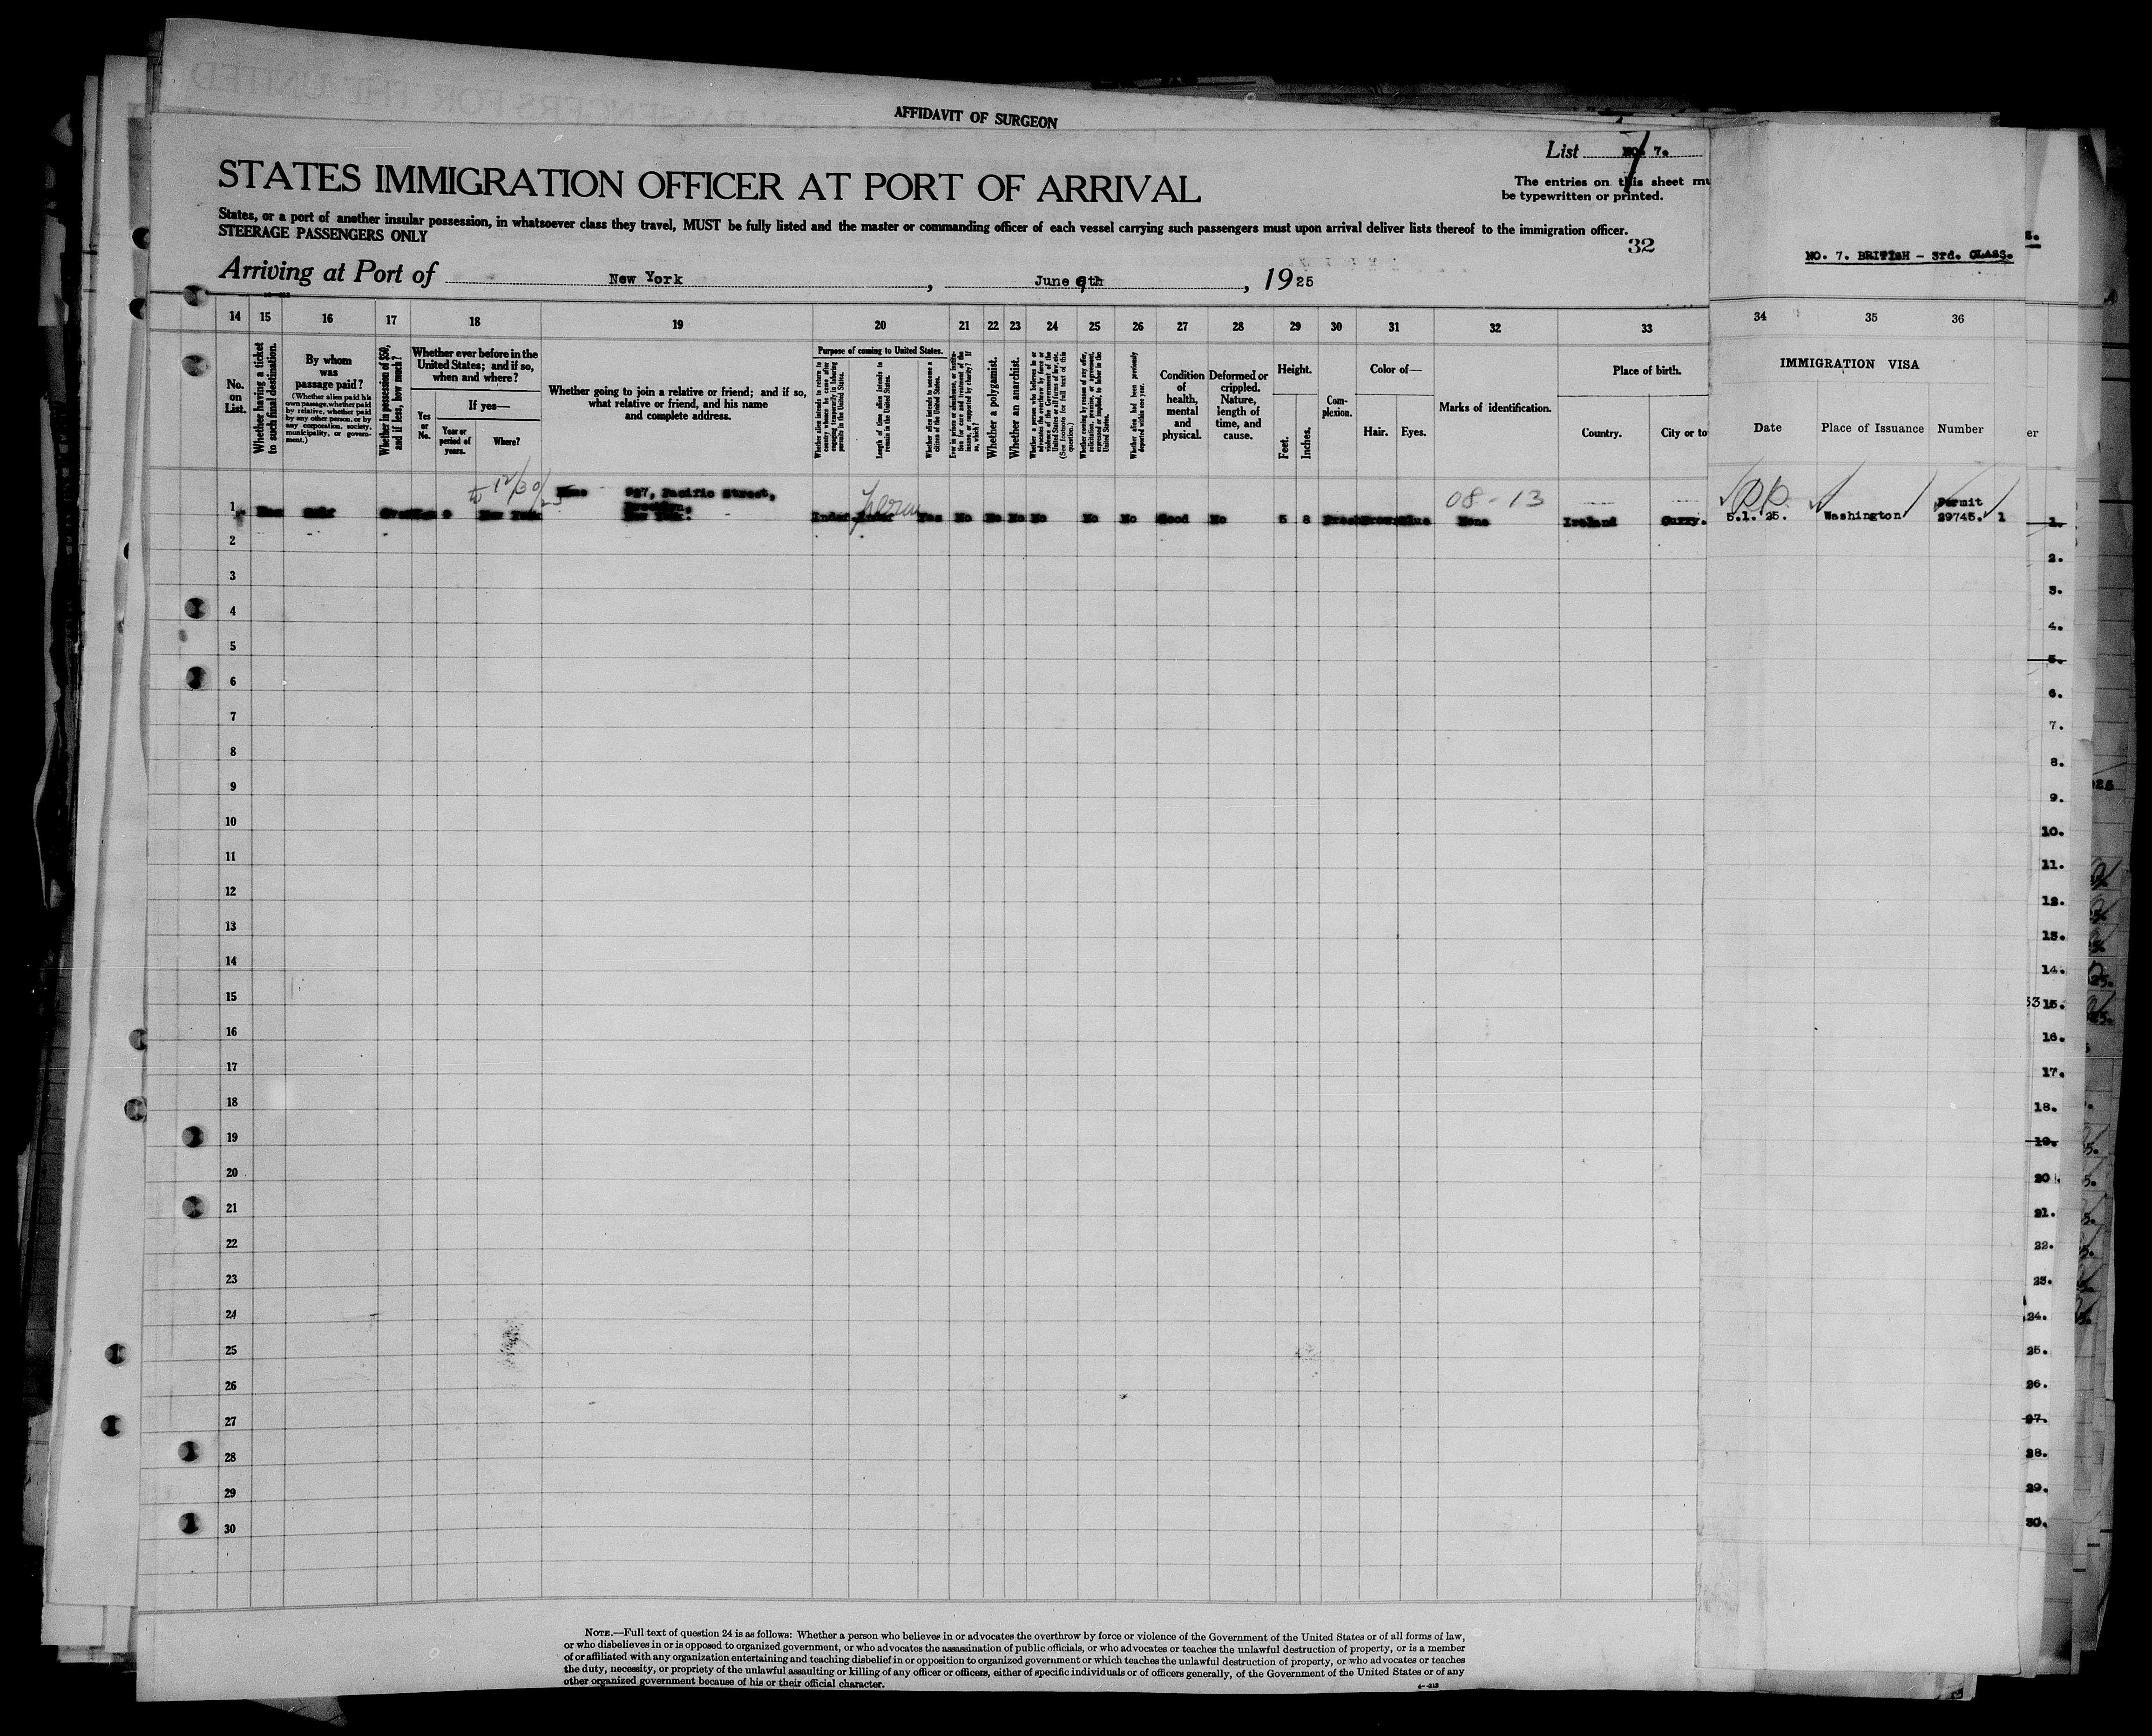 AFFIDAVIT OF SURGEON
List No. 7.
7
STATES IMMIGRATION OFFICER AT PORT OF ARRIVAL
The entries on this sheet mu
be typewritten or printed.
States, or a port of another insular possession, in whatsoever class they travel, MUST be fully listed and the master or commanding officer of each vessel carrying such passengers must upon arrival deliver lists thereof to the immigration officer.
STEERAGE PASSENGERS ONLY
32
NO. 7. BRITISH - 3rd. CLASS.
Arriving at Port of New York, June 9th, 1925
14 15 16 17 18 19 20 21 22 23 24 25 26 27 28 29 30 31 32 33 34 35 36
No. on List.
Whether having a ticket to such final destination.
By whom was passage paid?
(Whether alien paid his own passage, whether paid by relative, whether paid by any other person, or by any corporation, society, municipality, or government.)
Whether in possession of $50, and if less, how much?
Whether ever before in the United States; and if so, when and where?
Yes or No.
If yes—
Year or period of years.
Where?
Whether going to join a relative or friend; and if so, what relative or friend, and his name and complete address.
Purpose of coming to United States.
Whether alien intends to return to country whence he came after engaging temporarily in laboring pursuits in the United States.
Length of time alien intends to remain in the United States.
Whether alien intends to become a citizen of the United States.
Ever in prison or almshouse, or institution for care and treatment of the insane, or supported by charity? If so, which?
Whether a polygamist.
Whether an anarchist.
Whether a person who believes in or advocates the overthrow by force or violence of the Government of the United States or all forms of law, etc. (See footnote for full text of this question.)
Whether coming by reason of any offer, solicitation, promise, or agreement, expressed or implied, to labor in the United States.
Whether alien had been previously deported within one year.
Condition of health, mental and physical.
Deformed or crippled. Nature, length of time, and cause.
Height.
Feet. Inches.
Complexion.
Color of—
Hair. Eyes.
Marks of identification.
Place of birth.
Country. City or to
IMMIGRATION VISA
Date Place of Issuance Number
er
12/30/25
937, Pacific Street,
Brooklyn,
New York.
08-13
Permit
1 Yes Self New York Indef Yes No No No No No No Good No 5 8 Fresh Brown Blue None Ireland Curry. 5.1.'25. Washington 29745. 1 1.
2 2.
3 3.
4 4.
5 5.
6 6.
7 7.
8 8.
9 9.
10 10.
11 11.
12 12.
13 13.
14 14.
15 15.
16 16.
17 17.
18 18.
19 19.
20 20.
21 21.
22 22.
23 23.
24 24.
25 25.
26 26.
27 27.
28 28.
29 29.
30 30.
NOTE.—Full text of question 24 is as follows: Whether a person who believes in or advocates the overthrow by force or violence of the Government of the United States or of all forms of law,
or who disbelieves in or is opposed to organized government, or who advocates the assassination of public officials, or who advocates or teaches the unlawful destruction of property, or is a member
of or affiliated with any organization entertaining and teaching disbelief in or opposition to organized government or which teaches the unlawful destruction of property, or who advocates or teaches
the duty, necessity, or propriety of the unlawful assaulting or killing of any officer or officers, either of specific individuals or of officers generally, of the Government of the United States or of any
other organized government because of his or their official character.